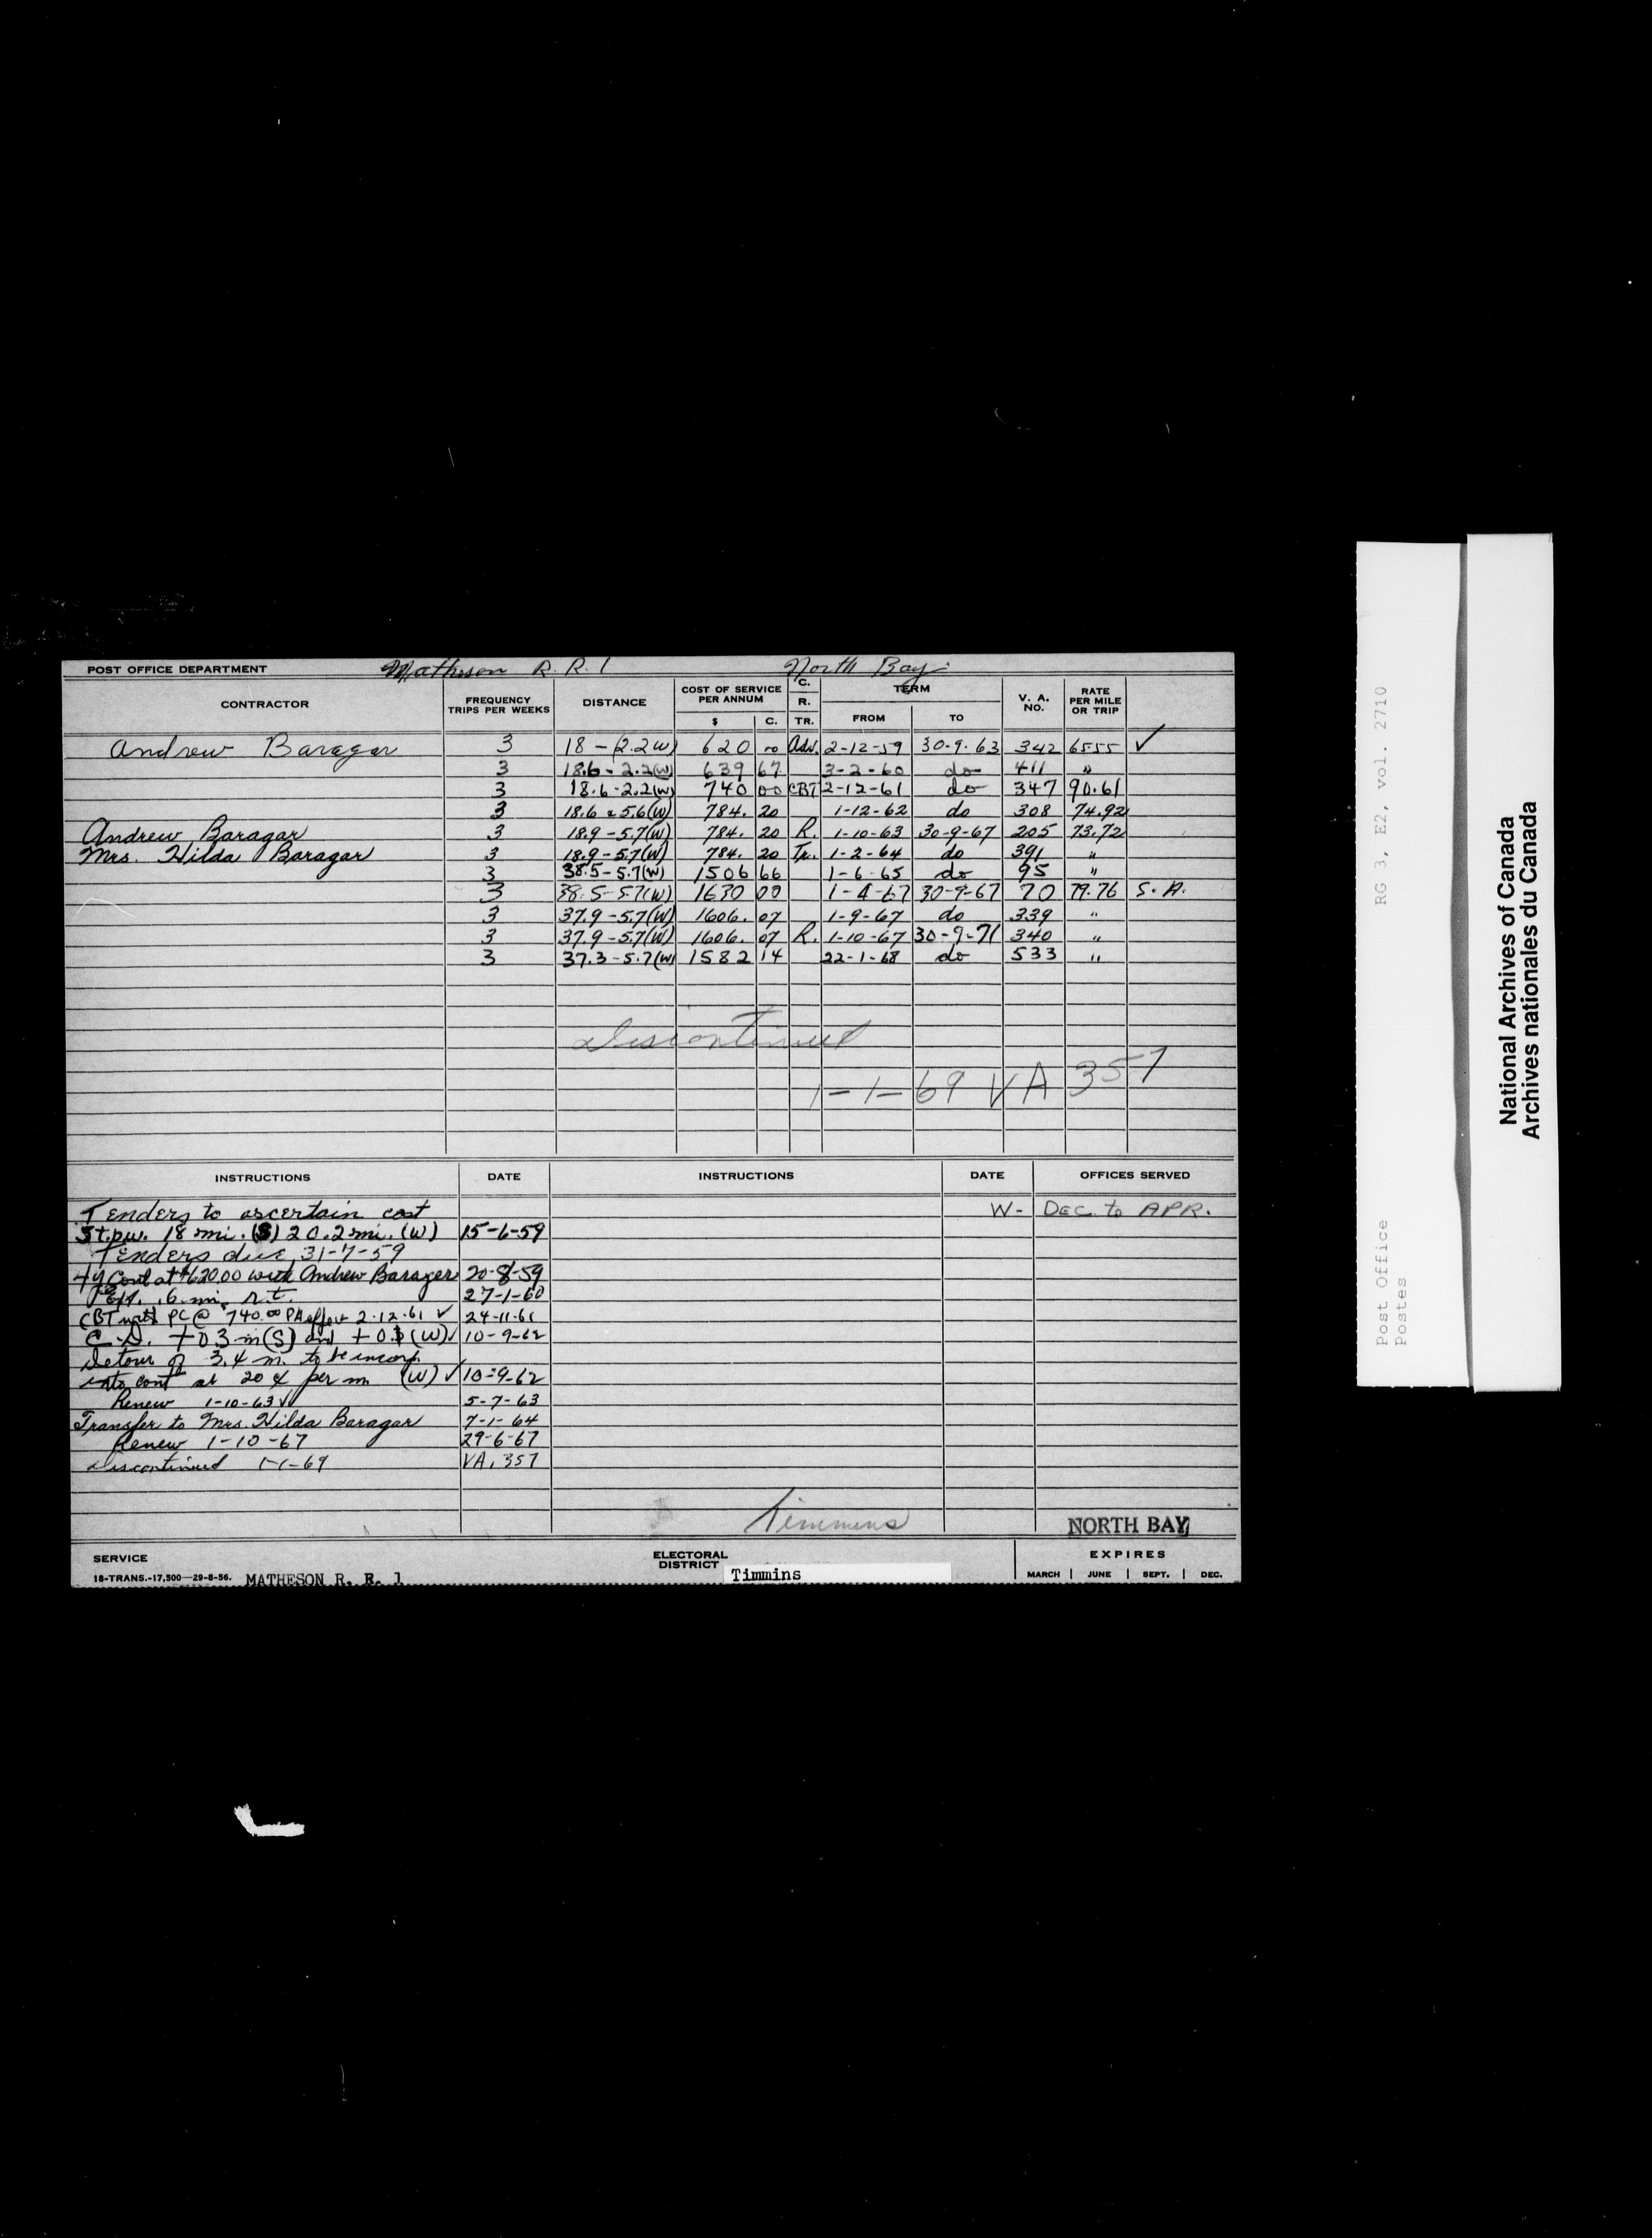 POST OFFICE DEPARTMENT Matheson R. R. 1 North Bay
CONTRACTOR FREQUENCY TRIPS PER WEEKS DISTANCE COST OF SERVICE PER ANNUM $ C. C. R. TR. TERM FROM TO V. A. NO. RATE PER MILE OR TRIP
Andrew Baragar 3 18 - (2.2 W) 620 00 Adv. 2-12-59 30-9-63 342 6555 ✓
3 18.6 - 2.2 (W) 639 67 3-2-60 do 411 "
3 18.6 - 2.2 (W) 740 00 CBT 2-12-61 do 347 90.61
3 18.6 - 5.6 (W) 784. 20 1-12-62 do 308 74.92
Andrew Baragar 3 18.9 - 5.7 (W) 784. 20 R. 1-10-63 30-9-67 205 73.72
Mrs. Hilda Baragar 3 18.9 - 5.7 (W) 784. 20 Tr. 1-2-64 do 391 "
3 38.5 - 5.7 (W) 1506 66 1-6-65 do 95 "
3 38.5 - 5.7 (W) 1630 00 1-4-67 30-9-67 70 79.76 S. A.
3 37.9 - 5.7 (W) 1606. 07 1-9-67 do 339 "
3 37.9 - 5.7 (W) 1606. 07 R. 1-10-67 30-9-71 340 "
3 37.3 - 5.7 (W) 1582 14 22-1-68 do 533 "
Discontinued
1-1-69 VA 357
INSTRUCTIONS DATE INSTRUCTIONS DATE OFFICES SERVED
Tenders to ascertain cost W- DEC. to APR.
3 t.p.w. 18 mi. (S) 20.2 mi. (W) 15-6-59
Tenders due 31-7-59
4 y Cont at $620.00 with Andrew Barager 20-8-59
Ext. .6 mi. r.t. 27-1-60
CBT PC @ 740.00 PA effect 2.12.61 ✓ 24-11-61
C.D. + 0.3 m (S) and + 0.1 (W) ✓ 10-9-62
Detour of 3.4 m. to be incorp.
into cont at 20 ¢ per m (W) ✓ 10-9-62
Renew 1-10-63 ✓
5-7-63
Transfer to Mrs. Hilda Baragar 7-1-64
Renew 1-10-67 29-6-67
discontinued 1-1-69 VA. 357
Timmins
NORTH BAY
SERVICE ELECTORAL DISTRICT EXPIRES
18-TRANS.-17,500—29-8-56. MATHESON R. R. 1 Timmins MARCH JUNE SEPT. DEC.
Post Office RG 3, E2, vol. 2710
Postes
National Archives of Canada
Archives nationales du Canada